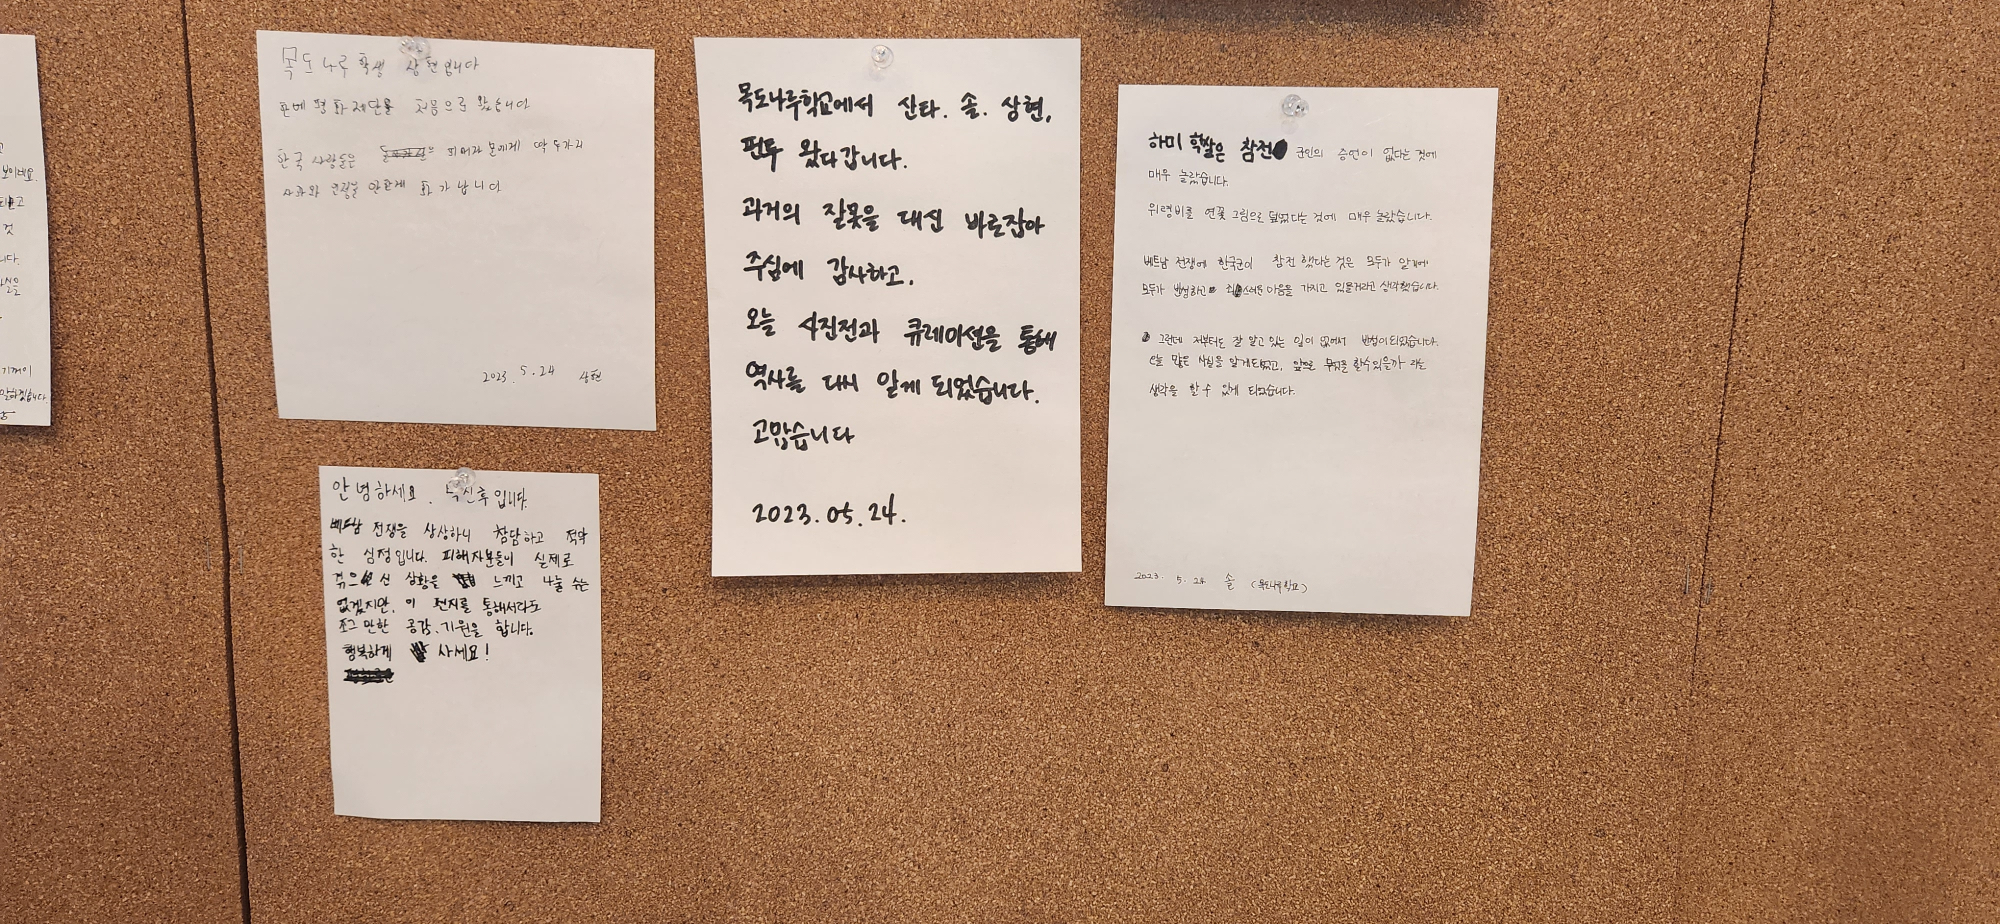 보이네요.
것
니다.
목도나루학생 상현입니다
한베평화재단을 처음으로 왔습니다
한국 사람들은 피해자 분에게 딱 두가지
사과와 인정을 안한게 화가 납니다
2023. 5. 24 상현
목도나루학교에서 산타. 솔. 상현,
핀투 왔다갑니다.
과거의 잘못을 대신 바로잡아
주심에 감사하고.
오늘 사진전과 큐레이션을 통해
역사를 다시 알게 되었습니다.
고맙습니다
2023. 05. 24.
하미 학살은 참전 군인의 증언이 없다는 것에
매우 놀랐습니다.
위령비를 연꽃 그림으로 덮었다는 것에 매우 놀랐습니다.
베트남 전쟁에 한국군이 참전 했다는 것은 모두가 알기에
모두가 반성하고 죄스러운 마음을 가지고 있을거라고 생각했습니다.
그런데 저부터도 잘 알고 있는 일이 없어서 반성이 되었습니다.
오늘 많은 사실을 알게 되었고, 앞으로 무엇을 할 수 있을까 라는
생각을 할 수 있게 되었습니다.
2023. 5. 24 솔 (목도나루학교)
안녕하세요. 입니다.
베트남 전쟁을 상상하니 참담하고 적막
한 심정입니다. 피해자분들이 실제로
겪으신 상황을 느끼고 나눌 수는
없겠지만, 이 편지를 통해서라도
조그만한 공감, 기원을 합니다.
행복하게 사세요!